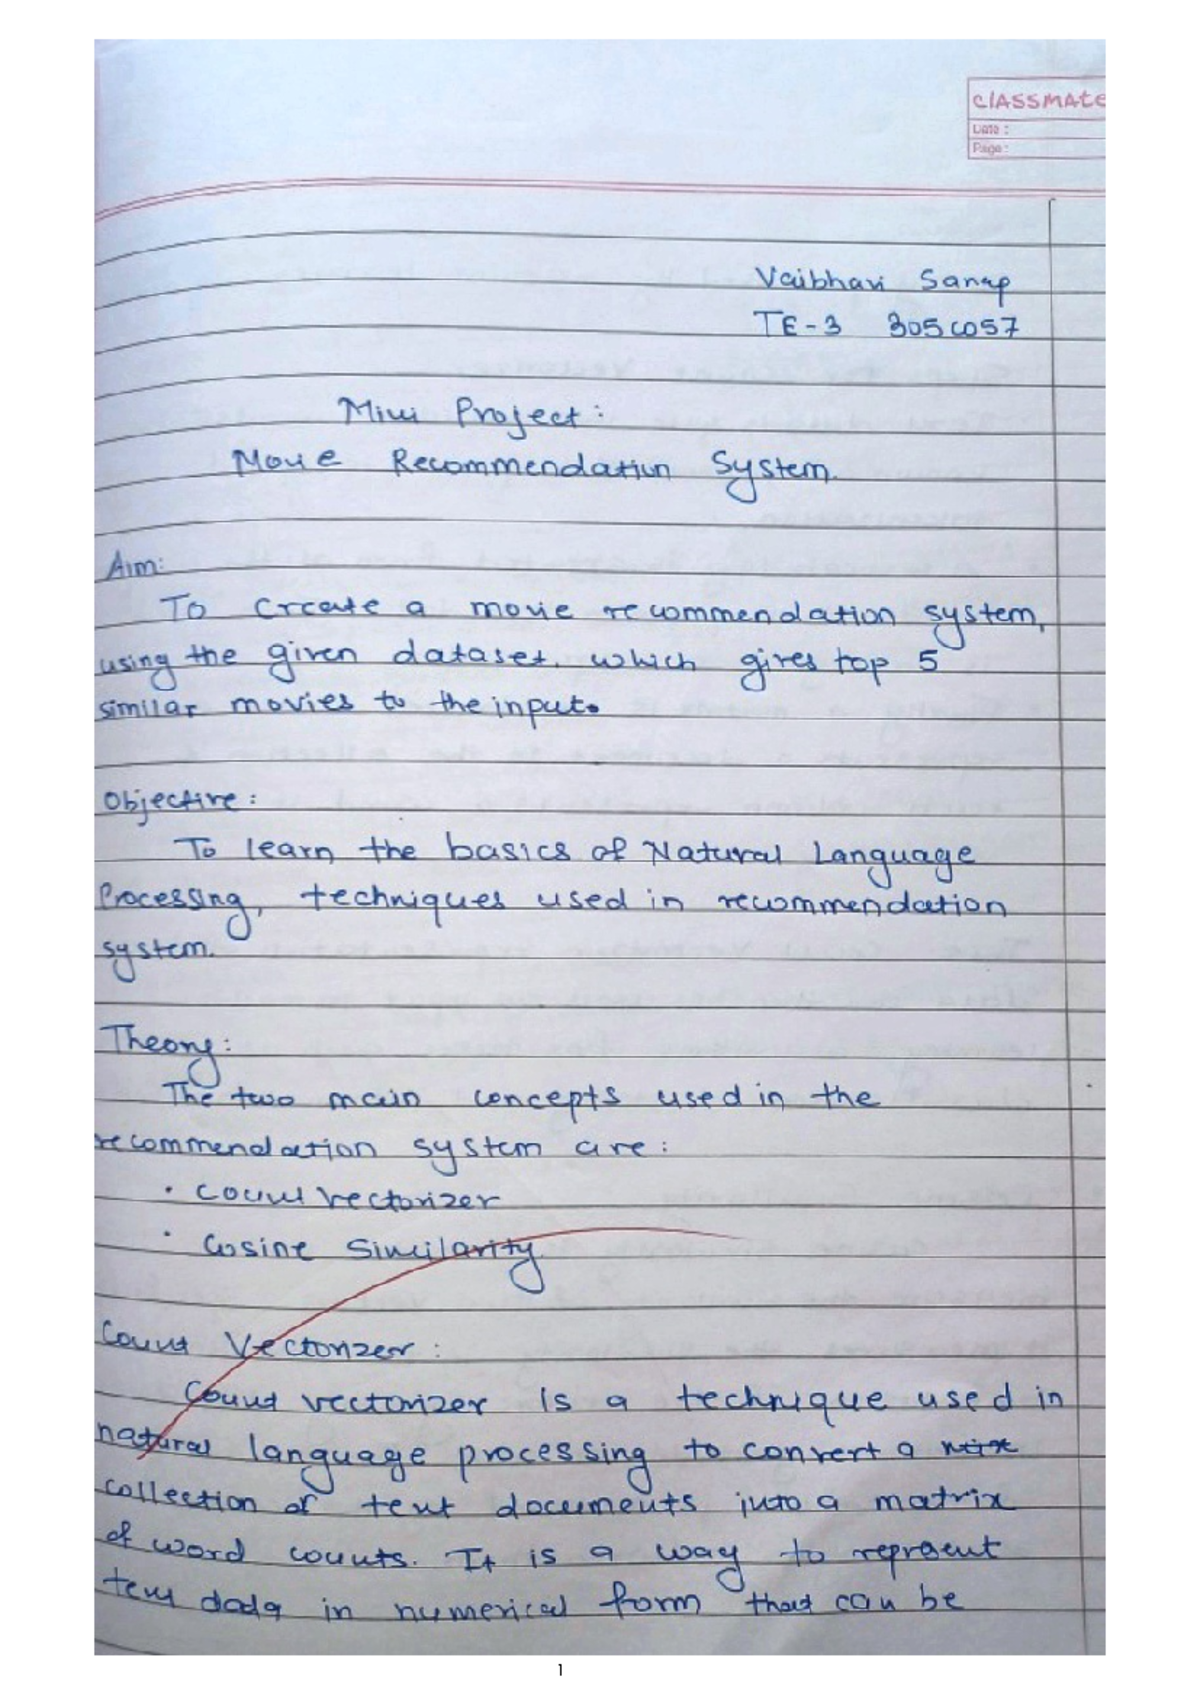 classmate
Date :
Page :
Vaibhavi Sanap
TE-3 305C057
Mini Project :
Movie Recommendation System.
Aim:
To create a movie recommendation system,
using the given dataset, which gives top 5
similar movies to the input.
Objective :
To learn the basics of Natural Language
Processing, techniques used in recommendation
system.
Theory :
The two main concepts used in the
recommendation system are :
• Count Vectorizer
• Cosine Similarity
Count Vectorizer :
Count vectorizer is a technique used in
natural language processing to convert a
collection of text documents into a matrix
of word counts. It is a way to represent
text data in numerical form that can be
1